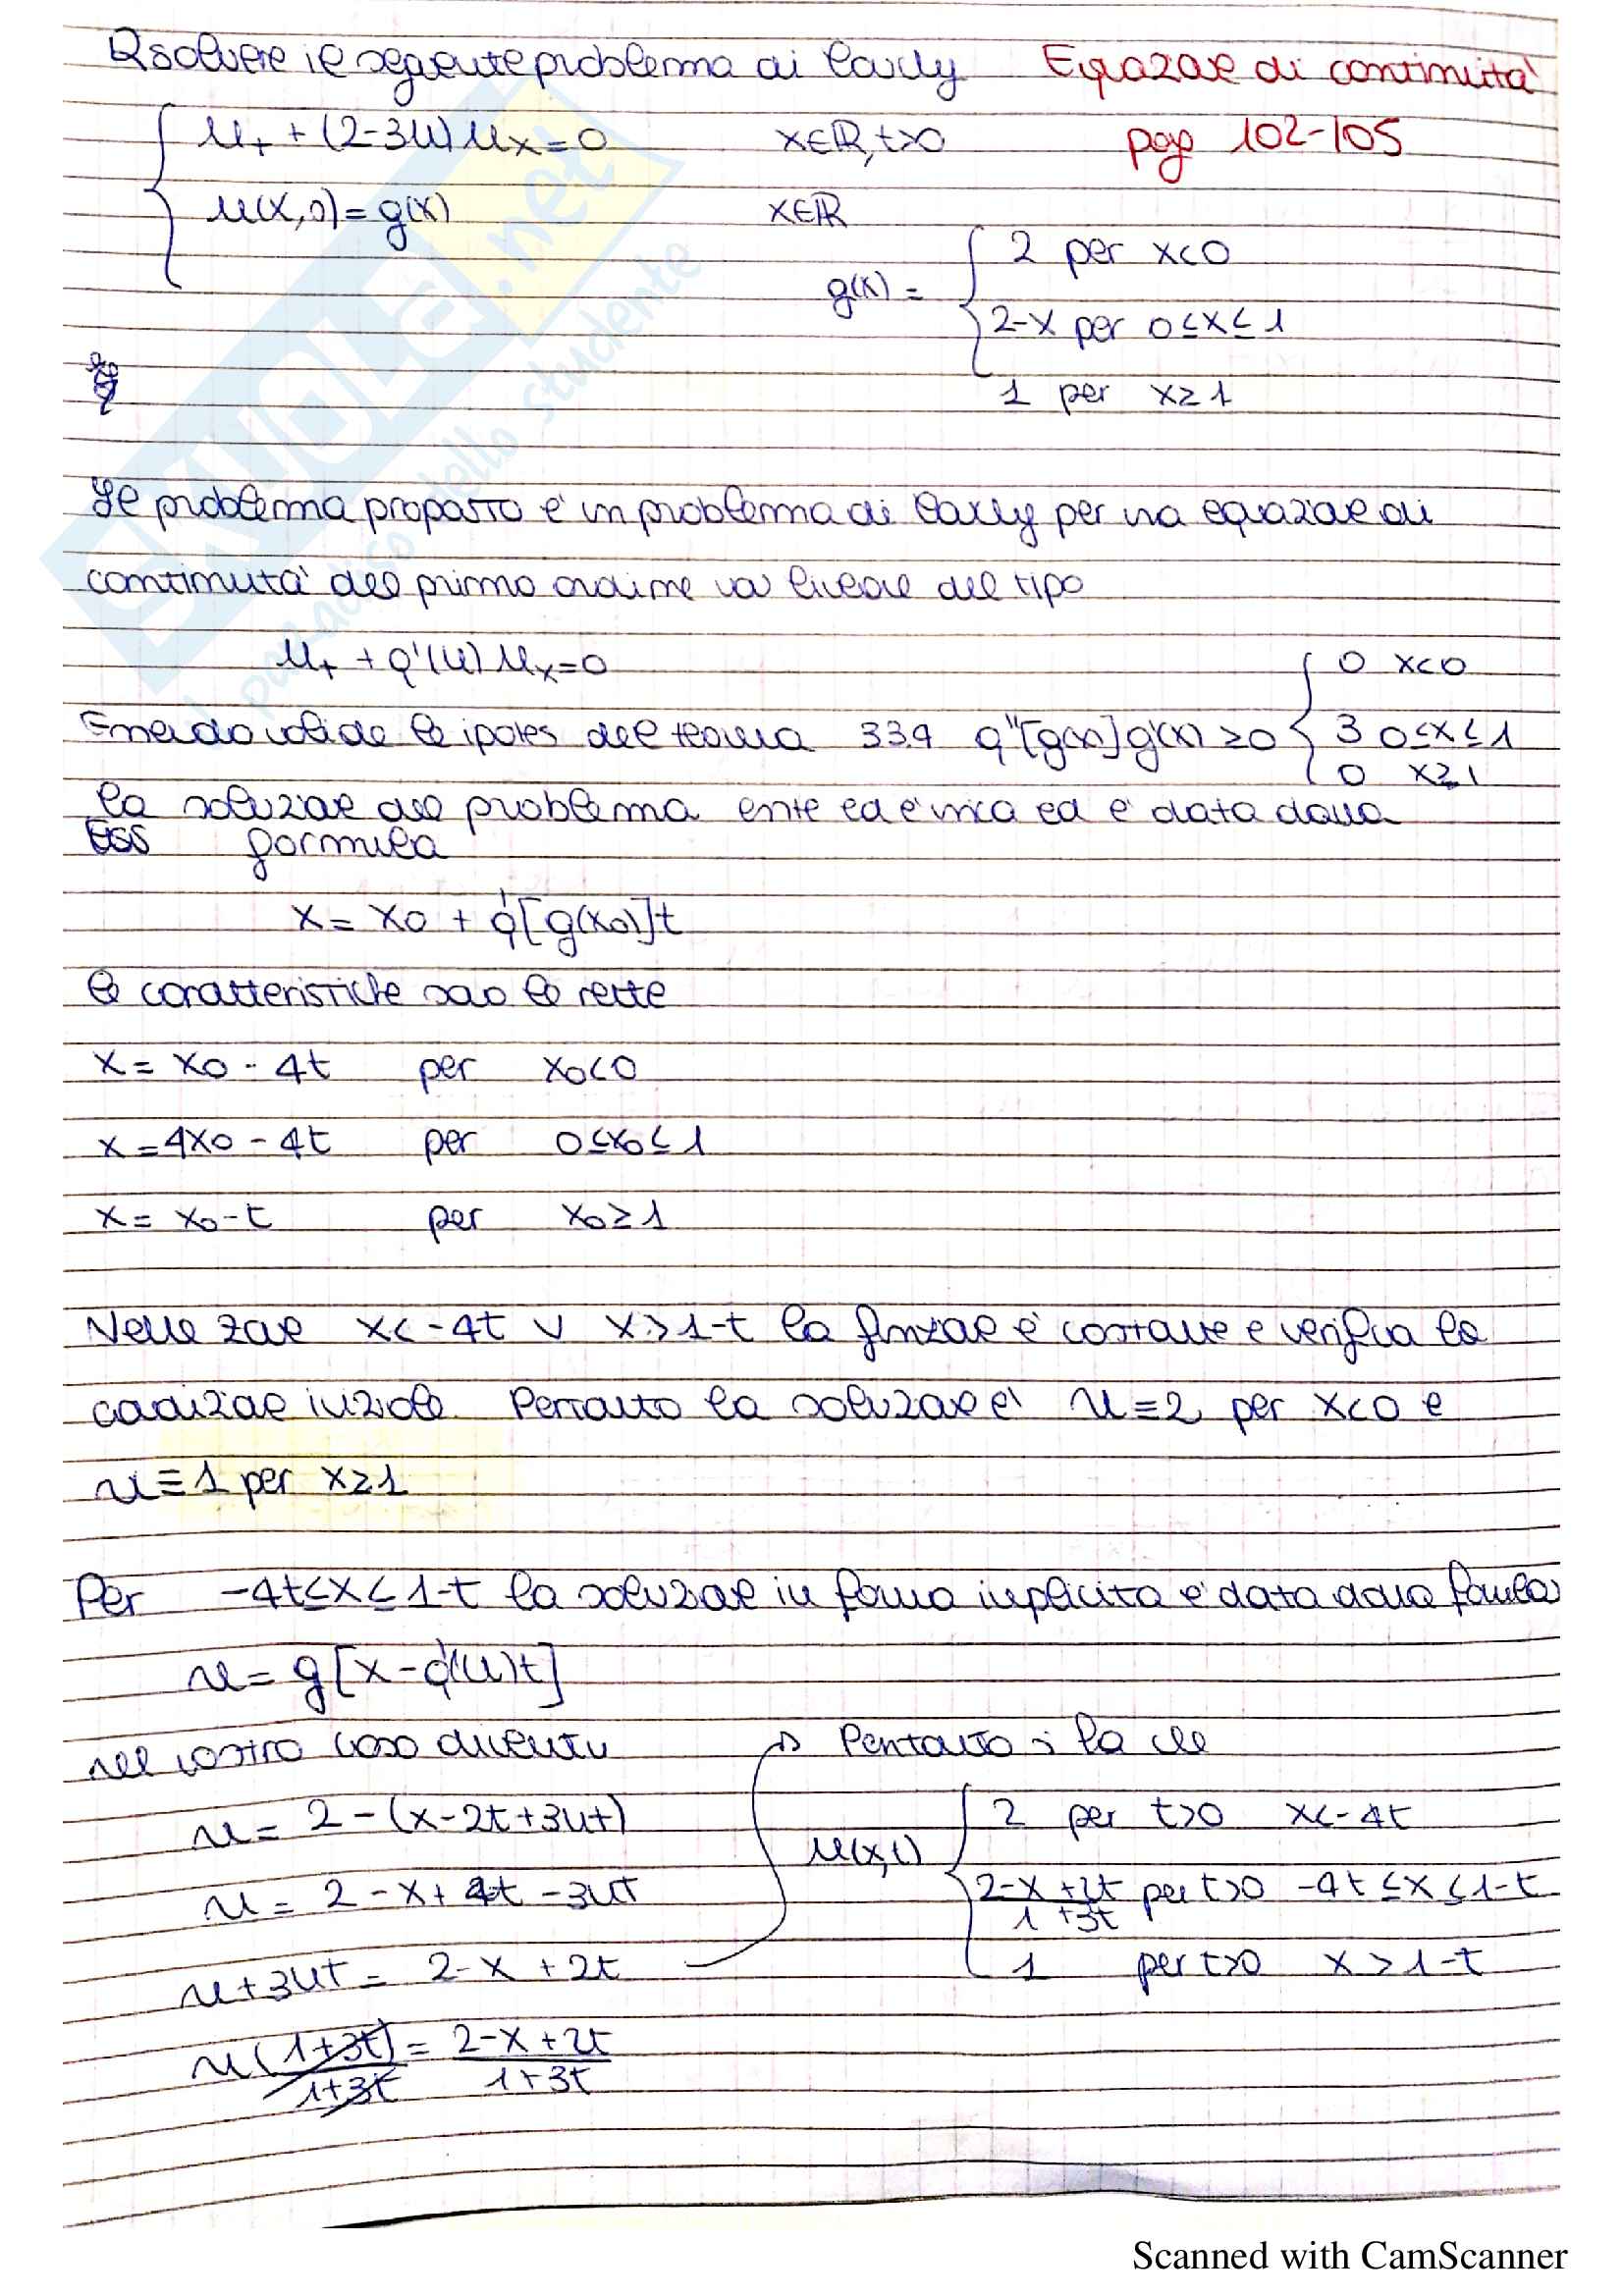 Risolvere il seguente problema di Cauchy Equazione di continuità
u_t + (2-3u)u_x = 0 x∈ℝ, t>0 pag 102-105
u(x,0) = g(x) x∈ℝ
g(x) = { 2 per x<0
2-x per 0≤x≤1
1 per x≥1
Il problema proposto è un problema di Cauchy per una equazione di
continuità del primo ordine non lineare del tipo
u_t + q'(u) u_x = 0
Essendo valide le ipotesi del teorema 3.3.9 q''[g(x)]g'(x) ≥0 { 0 x<0
3 0≤x≤1
0 x≥1
la soluzione del problema esiste ed è unica ed è data dalla
formula
x = x0 + q'[g(x0)]t
le caratteristiche sono le rette
x = x0 - 4t per x0<0
x = 4x0 - 4t per 0≤x0≤1
x = x0 - t per x0≥1
Nelle zone x<-4t ∨ x>1-t la funzione è costante e verifica la
condizione iniziale. Pertanto la soluzione è u≡2 per x<0 e
u≡1 per x≥1
Per -4t≤x≤1-t la soluzione in forma implicita è data dalla formula
u = g[x-q'(u)t]
nel nostro caso diventa → Pertanto si ha che
u = 2-(x-2t+3ut)
u = 2-x+2t-3ut
u+3ut = 2-x+2t
u(1+3t)/(1+3t) = (2-x+2t)/(1+3t)
u(x,t) { 2 per t>0 x<-4t
(2-x+2t)/(1+3t) per t>0 -4t≤x≤1-t
1 per t>0 x>1-t
SKUOLA.net
il paradiso dello studente
Scanned with CamScanner